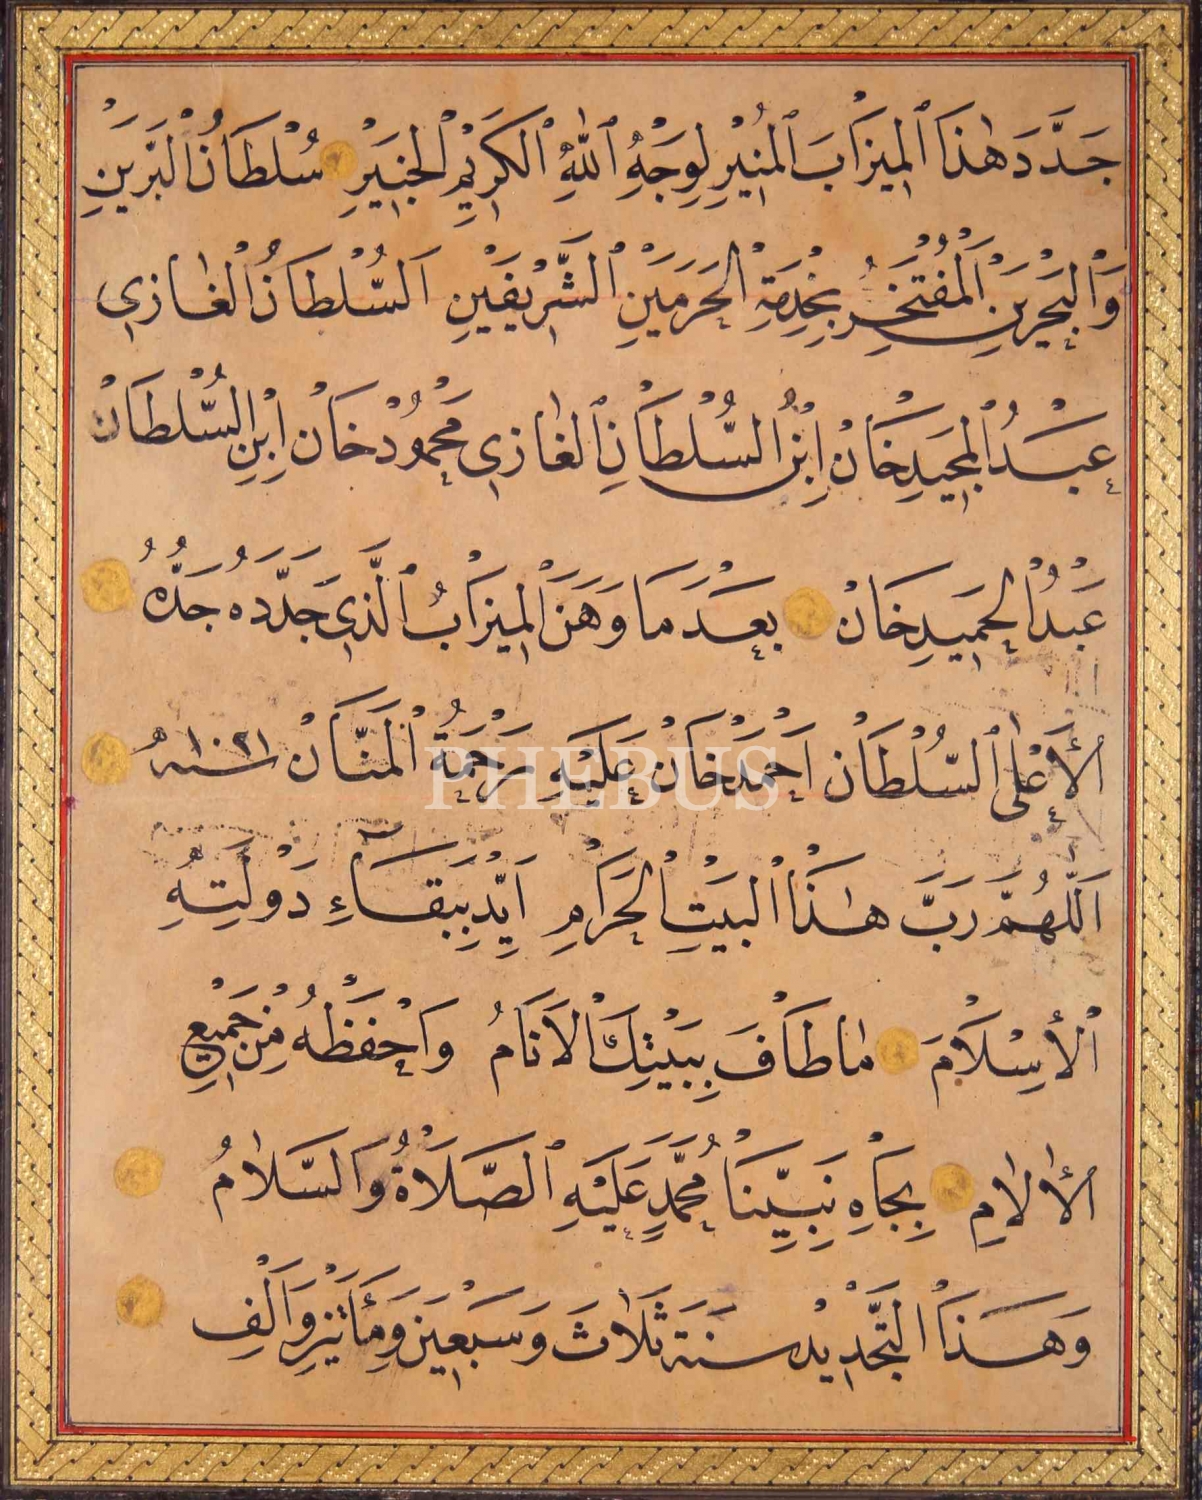 جَدَّدَ هٰذَا الْمِيزَابَ الْمُنِيْرِ لِوَجْهِ اللّٰهِ الْكَرِيْمِ الْخَبِيْرِ سُلْطَانُ الْبَرَّيْنِ
وَالْبَحْرَيْنِ الْمُفْتَخَرُ بِخِدْمَةِ الْحَرَمَيْنِ الشَّرِيْفَيْنِ اَلسُّلْطَانُ الْغَازِي
عَبْدُ الْمَجِيدِ خَانْ اِبْنُ السُّلْطَانِ الْغَازِي مَحْمُودْ خَانْ اِبْنِ السُّلْطَانْ
عَبْدُ الْحَمِيدِ خَانْ بَعْدَ مَا وَهَنَ الْمِيزَابُ الَّذِي جَدَّدَهُ جَدُّهُ
الْأَعْلٰى السُّلْطَانْ اَحْمَدْ خَانْ عَلَيْهِ رَحْمَةُ الْمَنَّانْ سنه ١٠٢١
اَللّٰهُمَّ رَبَّ هٰذَا الْبَيْتِ الْحَرَامِ اَيِّدْ بِبَقَاءِ دَوْلَتِهِ
الْأِسْلَامَ مَا طَافَ بِبَيْتِكَ الْاَنَامُ وَاحْفَظْهُ مِنْ جَمِيْعِ
الْأٰلَامِ بِجَاهِ نَبِيِّنَا مُحَمَّدٍ عَلَيْهِ الصَّلَاةُ وَالسَّلَامُ
وَهَذَا التَّجْدِيْدْ سَنَةَ ثَلَاثَ وَسَبْعِيْنَ وَمِأَتَيْنِ وَاَلْفِ
PHEBUS